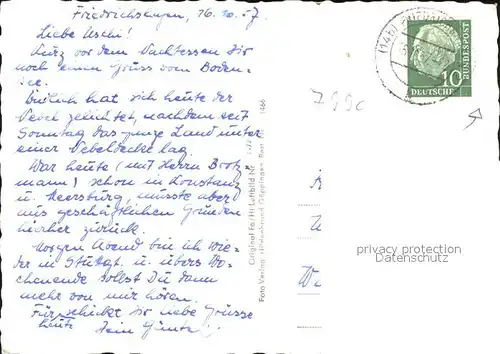 Friedrichshafen, 16.10.57
Liebe Uschi!
Kurz vor dem Nachtessen Dir
noch einen Gruss vom Boden-
see.
Endlich hat sich heute der
Nebel gelichtet, nachdem seit
Sonntag das ganze Land unter
einer Nebeldecke lag.
War heute (mit Herrn
mann) schon in Konstanz
u. Meersburg, musste aber
aus geschäftlichen Gründen
hierher zurück.
Morgen Abend bin ich wie-
der in Stuttgt. u. übers Wo-
chenende sollst Du dann
mehr von mir hören.
Für heute schickt Dir liebe Grüsse
Dein Günter
Foto Verlag Göppingen
10
DEUTSCHE
BUNDESPOST
privacy protection
Datenschutz